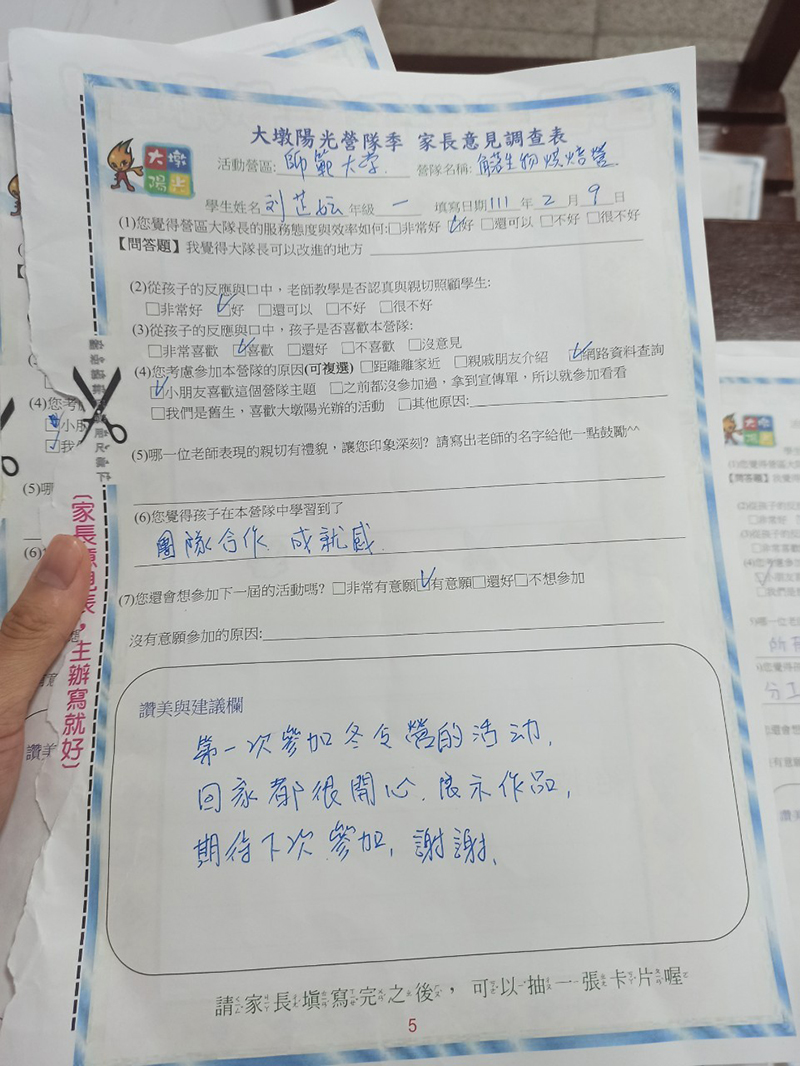 大墩陽光營隊季 家長意見調查表
大墩
陽光
活動營區: 師範大學 營隊名稱: 解生物烘焙營
學生姓名 刘芷妘 年級 一 填寫日期 111 年 2 月 9 日
(1)您覺得營區大隊長的服務態度與效率如何:□非常好 ☑好 □還可以 □不好 □很不好
【問答題】我覺得大隊長可以改進的地方
(2)從孩子的反應與口中，老師教學是否認真與親切照顧學生:
□非常好 ☑好 □還可以 □不好 □很不好
(3)從孩子的反應與口中，孩子是否喜歡本營隊:
□非常喜歡 ☑喜歡 □還好 □不喜歡 □沒意見
(4)您考慮參加本營隊的原因(可複選) □距離離家近 □親戚朋友介紹 ☑網路資料查詢
☑小朋友喜歡這個營隊主題 □之前都沒參加過，拿到宣傳單，所以就參加看看
□我們是舊生，喜歡大墩陽光辦的活動 □其他原因:
(5)哪一位老師表現的親切有禮貌，讓您印象深刻? 請寫出老師的名字給他一點鼓勵^^
(6)您覺得孩子在本營隊中學習到了
團隊合作. 成就感.
(7)您還會想參加下一屆的活動嗎? □非常有意願 ☑有意願 □還好 □不想參加
沒有意願參加的原因:
讚美與建議欄
第一次參加冬令營的活动,
回家都很開心. 展示作品,
期待下次參加, 謝謝.
請家長填寫完之後，可以抽一張卡片喔
5
〔家長意見表，主辦寫就好〕